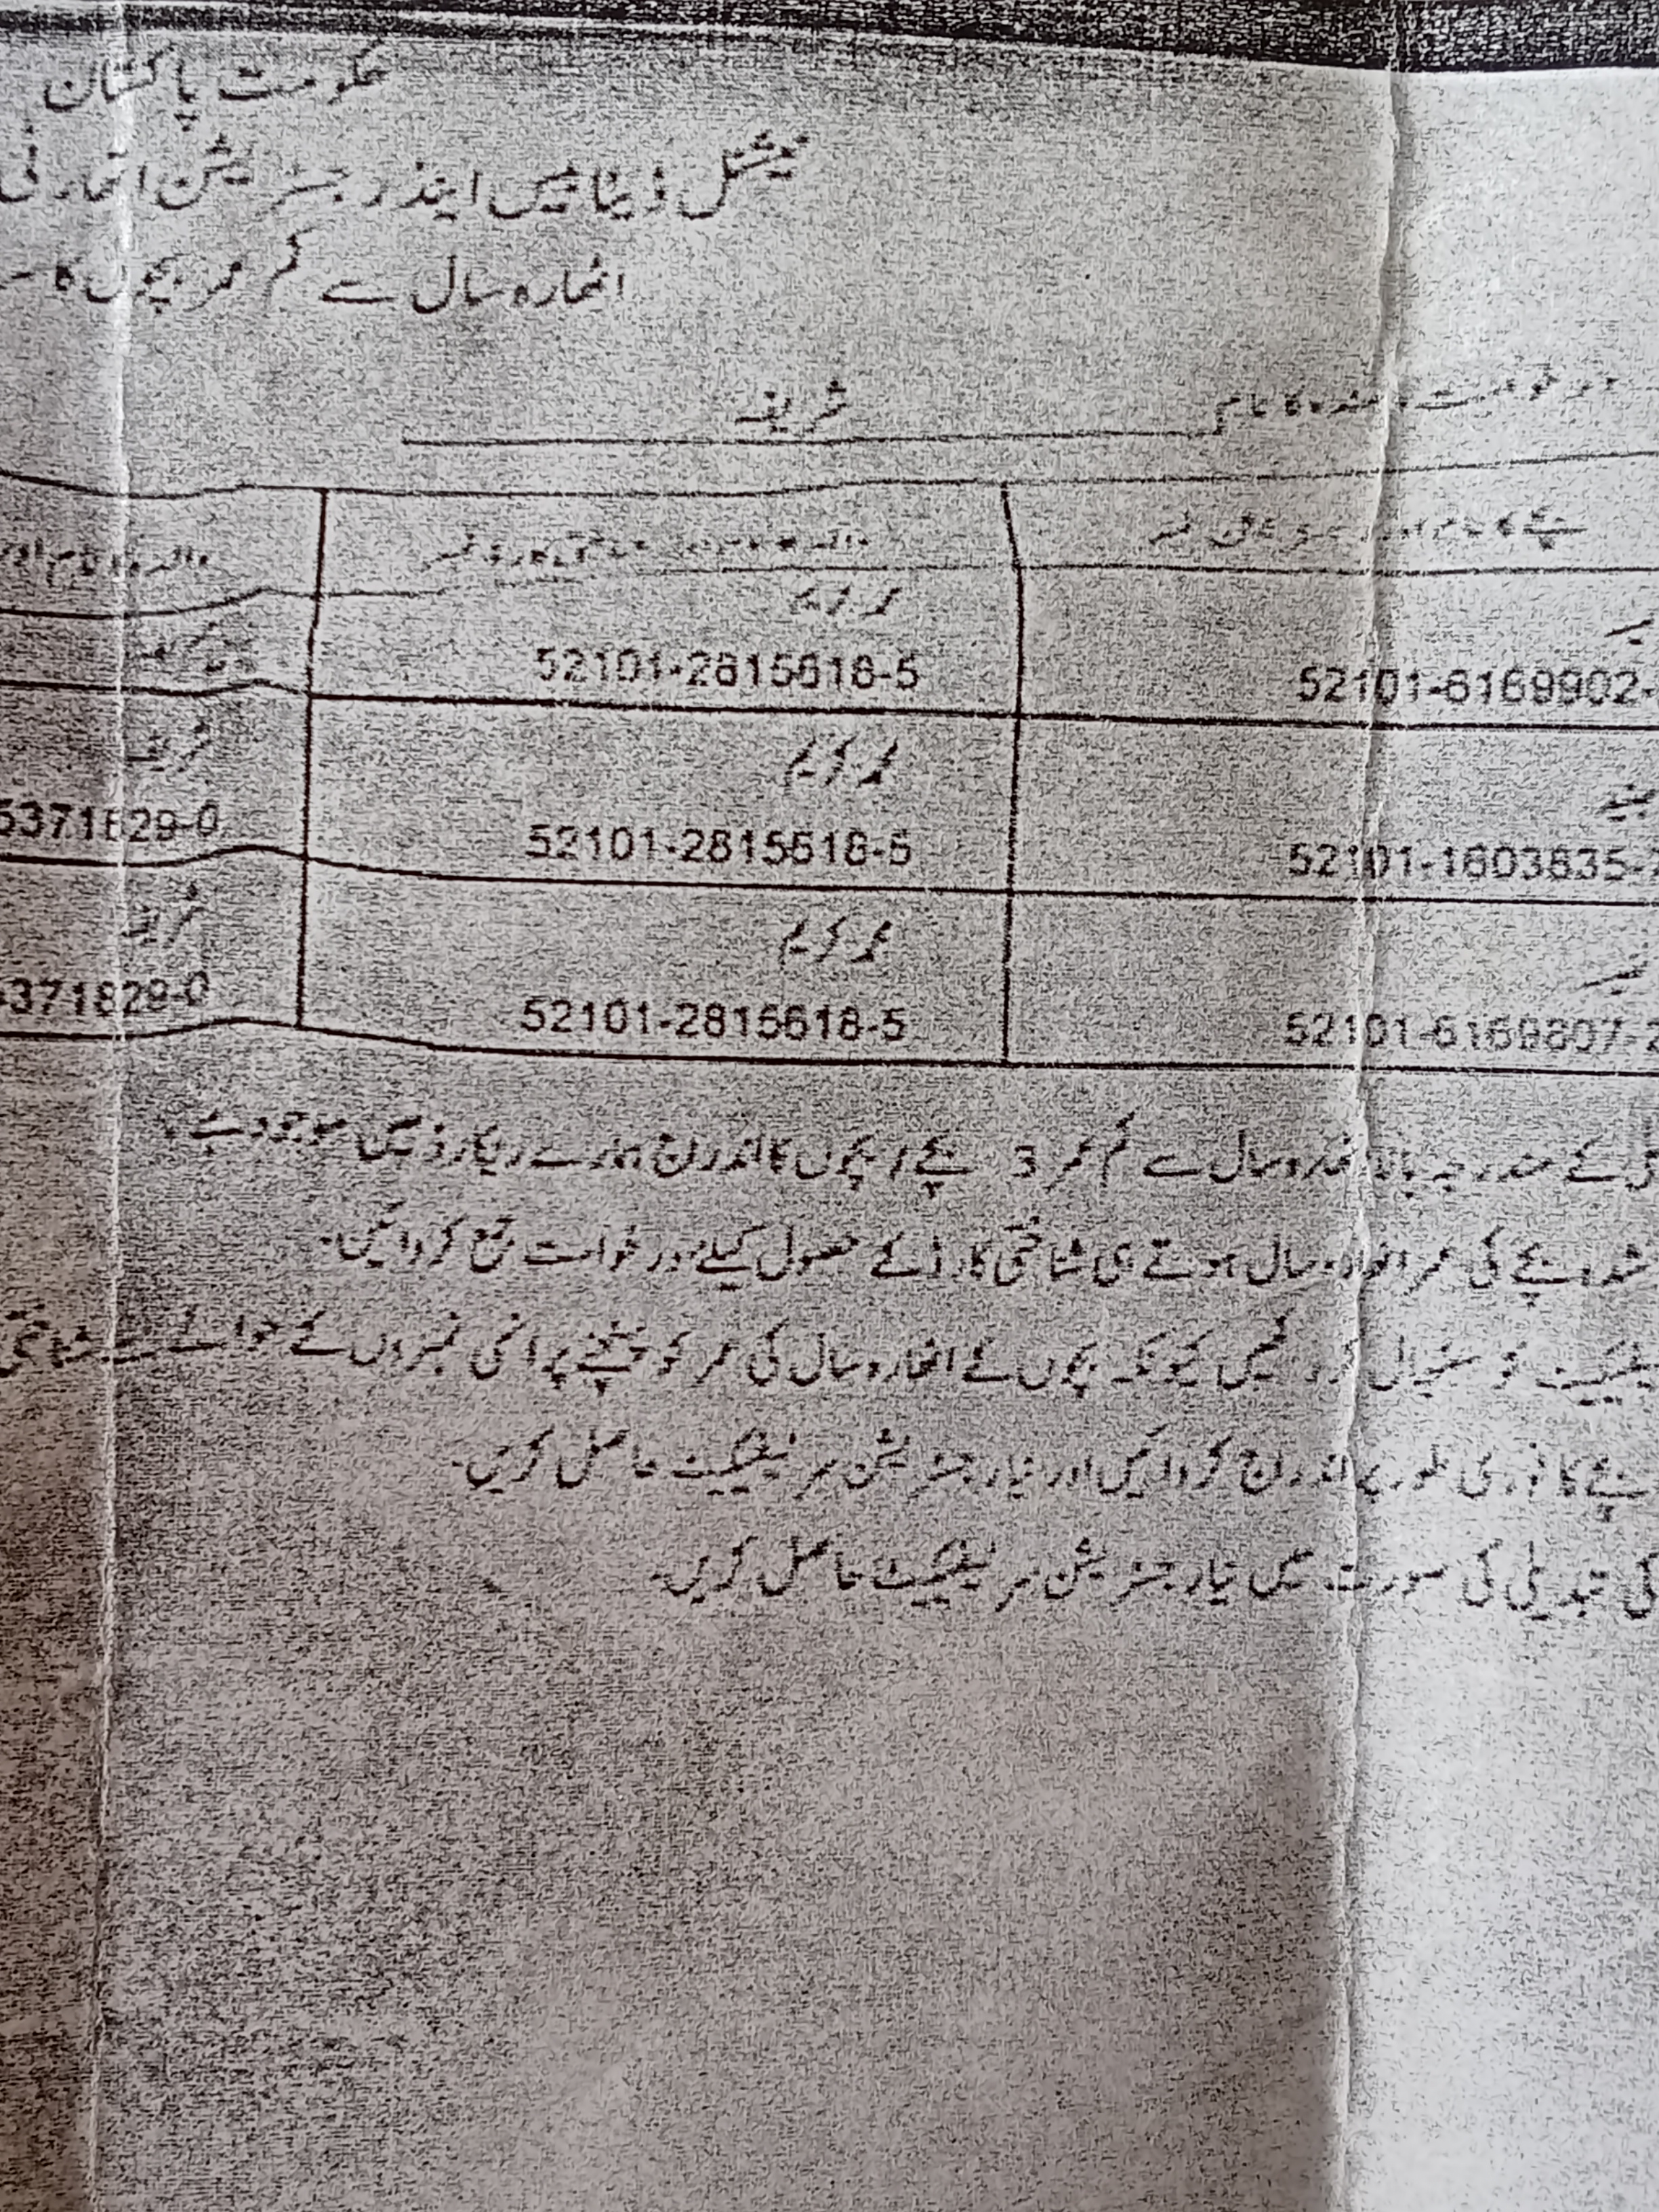 حکومت پاکستان
نیشنل ڈیٹابیس اینڈ رجسٹریشن اتھارٹی
اٹھارہ سال سے کم عمر بچوں کا
کا نام شریفہ
بچے کا نام نمبر
والدہ کا نام اور
محمد کریم
52101-2815618-5
52101-6169902-
شریفہ
محمد کریم
5371829-0
52101-2815618-5
52101-1603635-
شریفہ
محمد کریم
371829-0
52101-2815618-5
52101-6169807-2
کے مندرجہ بالا اٹھارہ سال سے کم عمر 3 بچے / بچوں کا اندراج ہمارے ریکارڈ میں موجود ہے۔
شدہ بچے کی عمر اٹھارہ سال ہوتے ہی شناختی کارڈ کے حصول کیلئے درخواست جمع کروائیں۔
کو سنبھال کر رکھیں کیونکہ بچوں کے اٹھارہ سال کی عمر کو پہنچنے پر انہی نمبروں کے حوالے سے شناختی
بچے کا فوری طور پر اندراج کروائیں اور نیا رجسٹریشن سرٹیفکیٹ حاصل کریں۔
کی تبدیلی کی صورت میں نیا رجسٹریشن سرٹیفکیٹ حاصل کریں۔